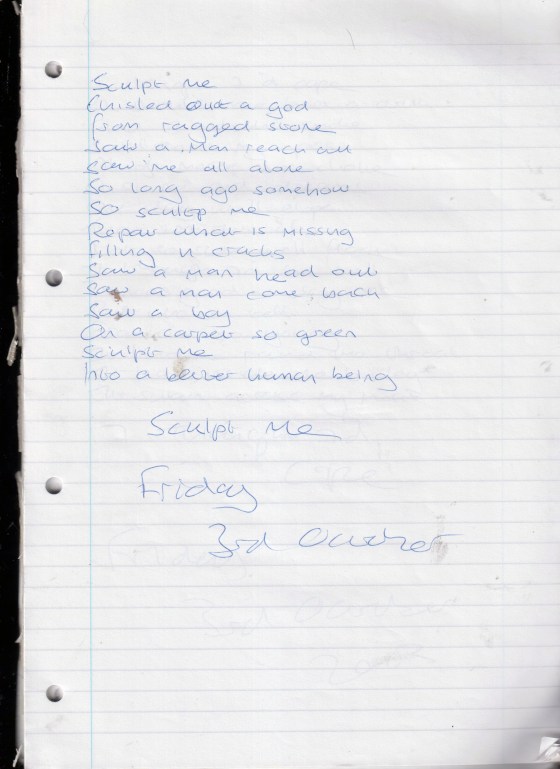 Sculpt me
Chisled out a god
from ragged stone
Saw a man reach out
saw me all alone
So long ago somehow
So sculpt me
Repair what is missing
filling in cracks
Saw a man head out
Saw a man come back
Saw a boy
On a carpet so green
Sculpt me
Into a better human being
Sculpt Me
Friday
3rd October